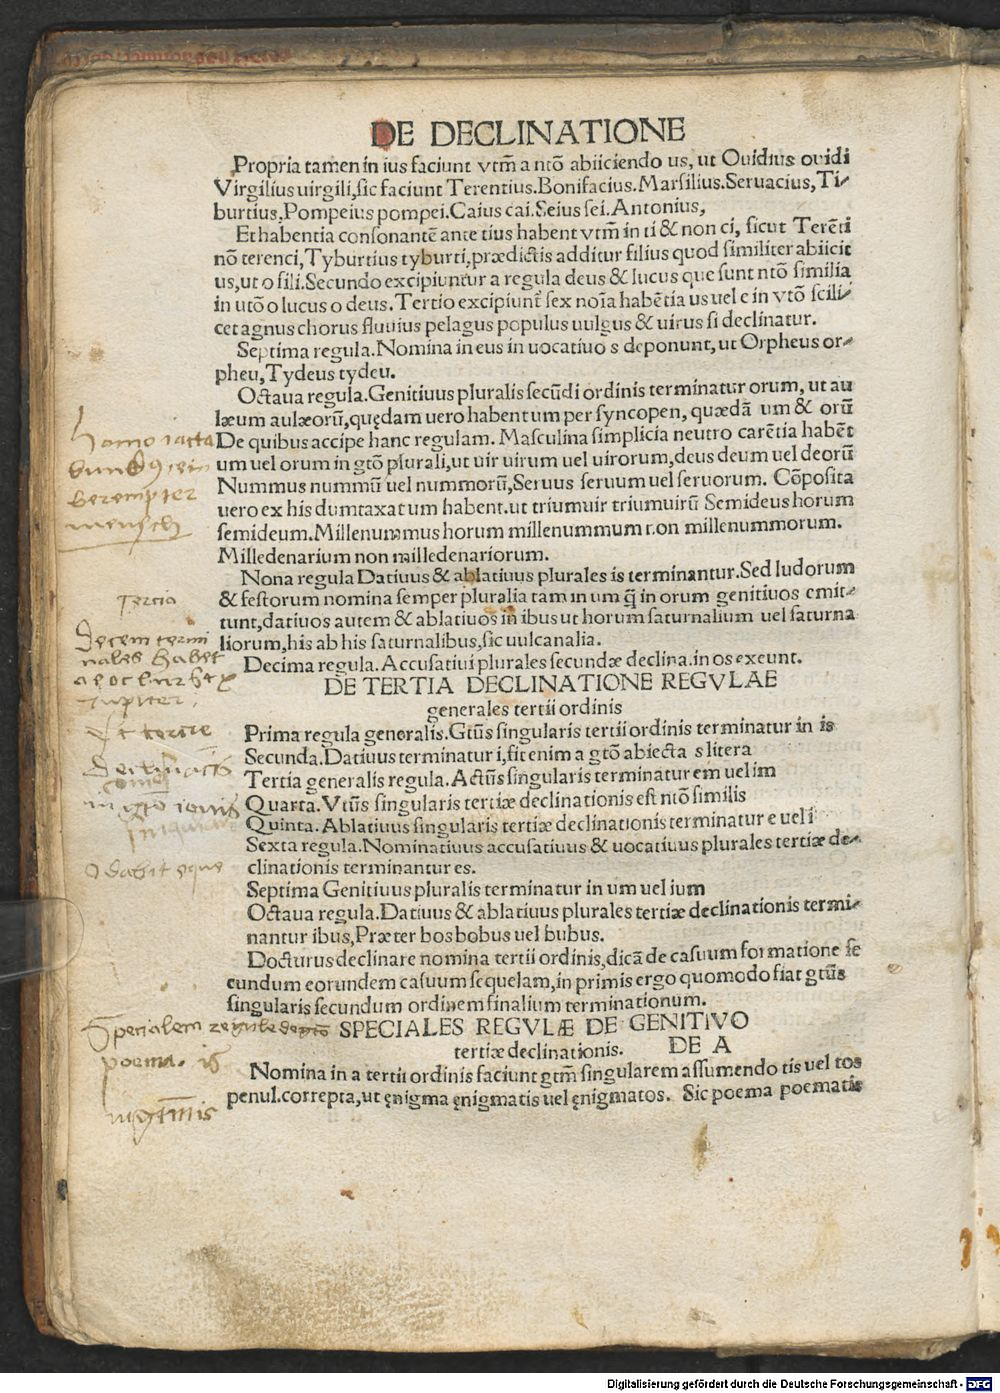 DE DECLINATIONE
Propria tamen in ius faciunt vtm̃ a ntõ abiiciendo us, ut Ouidius ouidi
Virgilius uirgili, sic faciunt Terentius. Bonifacius. Marsilius. Seruacius, Ti⸗
burtius, Pompeius pompei. Caius cai. Seius sei. Antonius,
Et habentia consonantẽ ante tius habent vtm̃ in ti & non ci, sicut Terẽti
nõ terenci, Tyburtius tyburti, prædictis additur filius quod similiter abiicit
us, ut o fili. Secundo excipiuntur a regula deus & lucus que sunt ntõ similia
in utõ o lucus o deus. Tertio excipiunt̃ sex noĩa habẽtia us uel e in vtõ scili⸗
cet agnus chorus fluuius pelagus populus uulgus & uirus si declinatur.
Septima regula. Nomina in eus in uocatiuo s deponunt, ut Orpheus or⸗
pheu, Tydeus tydeu.
Octaua regula. Genitiuus pluralis secũdi ordinis terminatur orum, ut au
læum aulæorũ, quędam uero habent um per syncopen, quædã um & orũ
De quibus accipe hanc regulam. Masculina simplicia neutro carẽtia habẽt
um uel orum in gtõ plurali, ut uir uirum uel uirorum, deus deum uel deorũ
Nummus nummũ uel nummorũ, Seruus seruum uel seruorum. Cõposita
uero ex his dumtaxat um habent. ut triumuir triumuirũ Semideus horum
semideum. Millenummus horum millenummum non millenummorum.
Milledenarium non milledenariorum.
Nona regula Datiuus & ablatiuus plurales is terminantur. Sed ludorum
& festorum nomina semper pluralia tam in um q̃ in orum genitiuos emit⸗
tunt, datiuos autem & ablatiuos in ibus ut horum saturnalium uel saturna
liorum, his ab his saturnalibus, sic uulcanalia.
Decima regula. Accusatiui plurales secundæ declina. in os exeunt.
DE TERTIA DECLINATIONE REGVLAE
generales tertii ordinis
Prima regula generalis. Gtũs singularis tertii ordinis terminatur in is
Secunda. Datiuus terminatur i, fit enim a gtõ abiecta s litera
Tertia generalis regula. Actũs singularis terminatur em uel im
Quarta. Vtũs singularis tertiæ declinationis est ntõ similis
Quinta. Ablatiuus singularis tertiæ declinationis terminatur e uel i
Sexta regula. Nominatiuus accusatiuus & uocatiuus plurales tertiæ de⸗
clinationis terminantur es.
Septima Genitiuus pluralis terminatur in um uel ium
Octaua regula. Datiuus & ablatiuus plurales tertiæ declinationis termi⸗
nantur ibus, Præter bos bobus uel bubus.
Docturus declinare nomina tertii ordinis, dicã de casuum formatione se
cundum eorundem casuum sequelam, in primis ergo quomodo fiat gtũs
singularis secundum ordinem finalium terminationum.
SPECIALES REGVLÆ DE GENITIVO
tertiæ declinationis. DE A
Nomina in a tertii ordinis faciunt gtm̃ singularem assumendo tis uel tos
penul. correpta, ut ęnigma ęnigmatis uel ęnigmatos. Sic poema poematis
homo iacta
mensch
Tercia
Decem termi
nales habet
Jupiter
poema. is
Digitalisierung gefördert durch die Deutsche Forschungsgemeinschaft - DFG